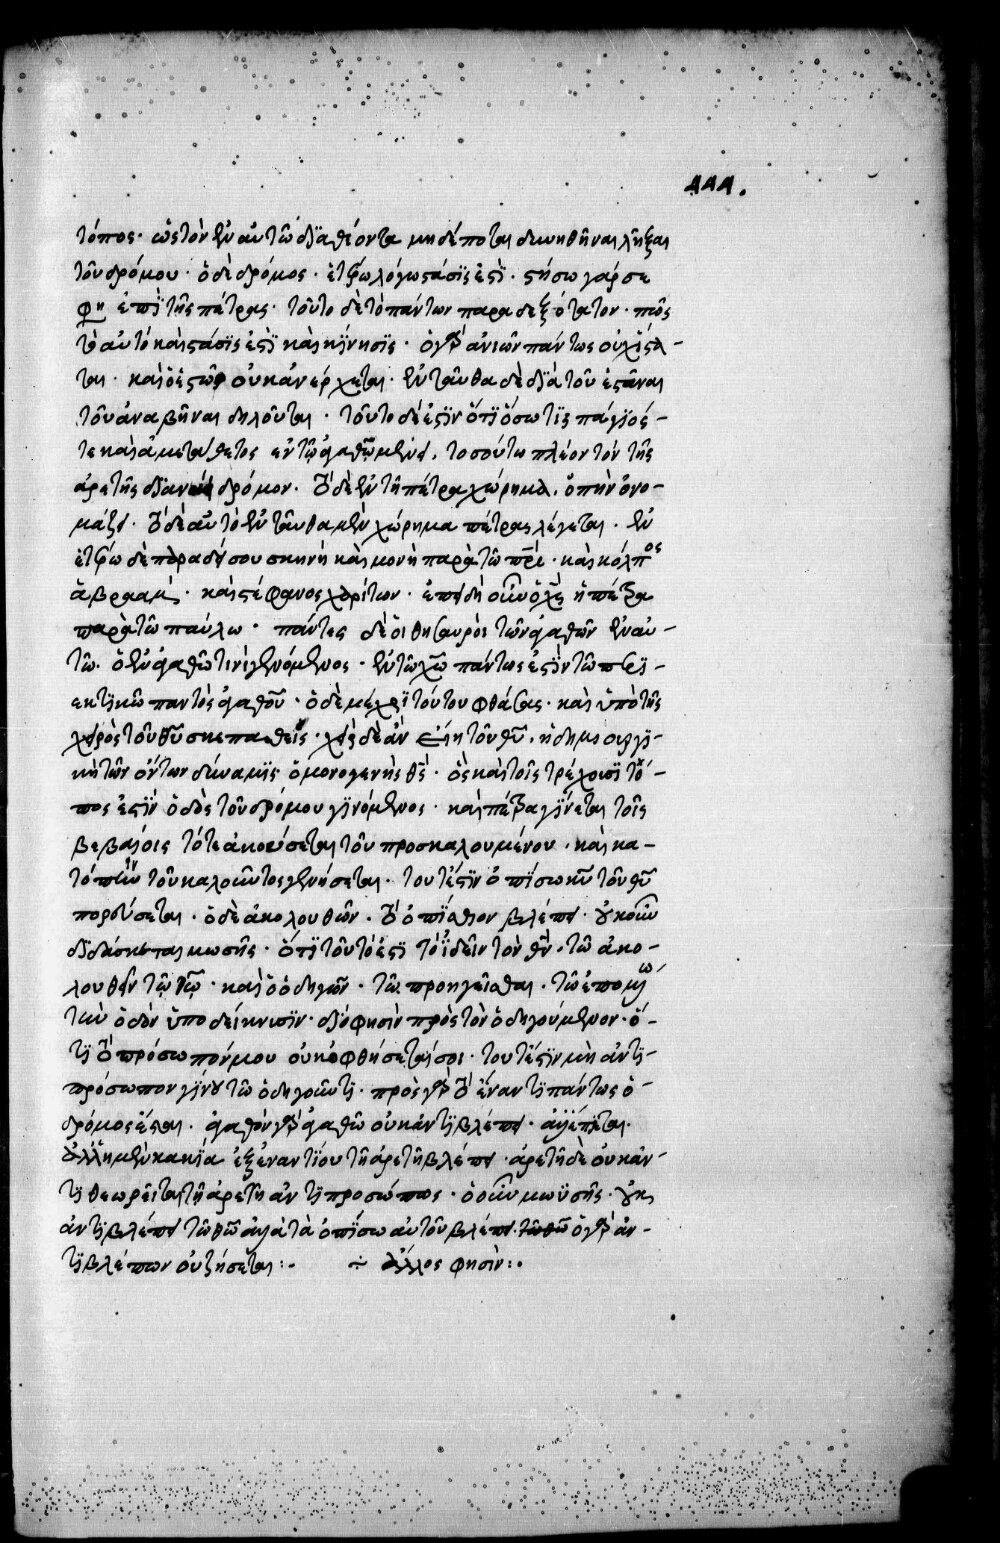 444.
τόπος· ὡς τὸν ἐν αὐτῶ διαθέοντα μηδέποται δυνηθῆναι λῆξαι
τοῦ δρόμου· ὁ δὲ δρόμος· ἑτέρω λόγω στάσις ἐστὶ· στήσω γάρ σε
φη ἐπὶ τῆς πέτρας· τοῦτο δὲ τὸ πάντων παραδεξότατον· πῶς
τὸ αὐτό καὶ στάσις ἐστὶ καὶ κίνησις· ὁ γὰρ ἀνιὼν πάντως οὐχ ἵστα-
ται· καὶ ὁ ἑστὼς οὐκ ἀνέρχεται· ἐνταῦθα δὲ διὰ τοῦ ἑστᾶναι
τοῦ ἀναβῆναι δηλοῦται· τοῦτο δέ ἐστιν ὅτι ὅσω τις πάγιός-
τε καὶ ἀμετάθετος ἐν τῷ ἀγαθῷ μένει, τοσούτω πλέον τὸν τῆς
ἀρετῆς διανύει δρόμον· τὸ δὲ ἐν τῆ πέτρα χώρημα, ὀπὴν ὀνο-
μάζει· τὸ δὲ αὐτὸ ἐνταῦθα μὲν χώρημα πέτρας λέγεται· ἐν
ἑτέρω δὲ παραδείσου σκηνὴ καὶ μονὴ παρὰ τῶ πρι· καὶ κόλπος
ἀβραὰμ· καὶ στέφανος χαρίτων· ἐπειδὴ οὖν ὁ χς ἡ πέτρα
παρὰ τῶ παύλω· πάντες δὲ οἱ θησαυροὶ τῶν ἀγαθῶν ἐν αὐ-
τῶ· ὁ ἐν ἀγαθῶ τινὶ γενόμενος· ἐν τῶ χω πάντως ἐστὶν τῶ περι-
εκτικῶ παντὸς ἀγαθοῦ· ὁ δὲ μέχρι τούτου φθάσας· καὶ ὑπὸ τῆς
χειρὸς τοῦ θυ σκεπασθεὶς· χεὶρ δὲ ἂν εἴη τοῦ θυ, ἡ δημιουργι-
κὴ τῶν ὄντων δύναμις ὁ μονογενὴς θς· ὃς καὶ τοῖς τρέχουσι τό-
πος ἐστὶν ὁδὸς τοῦ δρόμου γινόμενος· καὶ πέτρα γίνεται τοῖς
βεβαίοις τότε ἀκούσεται τοῦ προσκαλουμένου, καὶ κα-
τόπιν τοῦ καλοῦντος γενήσεται· τουτέστιν ὀπίσω κυ τοῦ θυ
πορεύσεται· ὁ δὲ ἀκολουθῶν· τὸ ὀπίσθιον βλέπει· οὐκοῦν
διδάσκεται μωσῆς· ὅτι τοῦτό ἐστι τὸ ἰδεῖν τὸν θν· τῶ ἀκο-
λουθεῖν τῷ θῷ· καὶ ὁ ὁδηγῶν· τῶ προηγεῖσθαι· τῶ ἑπομένω
τὴν ὁδὸν ὑποδείκνυσιν· διό φησὶν πρὸς τὸν ὁδηγούμενον· ὅ-
τι τὸ πρόσωπόν μου οὐκ ὀφθήσεταί σοι· τουτέστιν μὴ ἀντι-
πρόσωπον γίνου τῶ ὁδηγοῦντι· πρὸς γὰρ τὸ ἐναντι πάντως ὁ
δρόμος ἔσται· ἀγαθὸν γὰρ ἀγαθῶ οὐκ ἀντιβλέπει· ἀλλ' ἕπεται·
ἀλλ' ἡ μὲν κακία ἐξεναντίου τῆ ἀρετῆ βλέπει· ἀρετὴ δὲ οὐκ ἀν-
τιθεωρεῖται τῆ ἀρετῆ ἀντιπροσώπως· ὁ οὖν μωϋσῆς· οὐκ
ἀντιβλέπει τῶ θῶ ἀλλὰ τὰ ὀπίσω αὐτοῦ βλέπει· τῶ θῶ ὁ γὰρ ἀν-
τιβλέπων οὐ ζήσεται:· ~ ἄλλος φησὶν:·